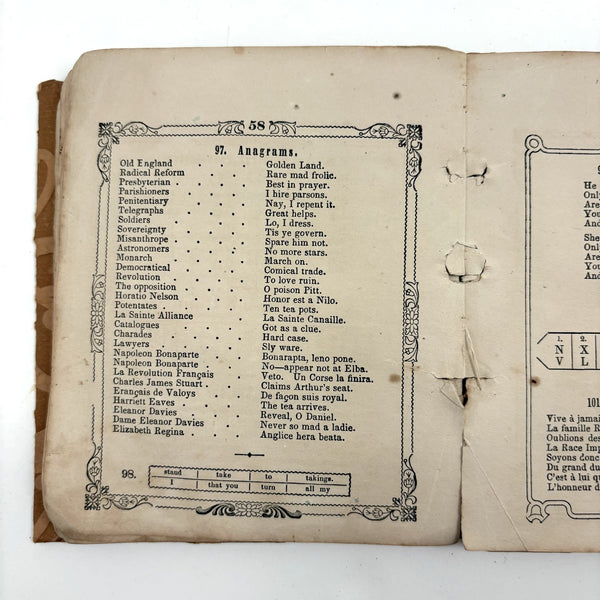 58
97. Anagrams.
Old England Golden Land.
Radical Reform Rare mad frolic.
Presbyterian Best in prayer.
Parishioners I hire parsons.
Penitentiary Nay, I repent it.
Telegraphs Great helps.
Soldiers Lo, I dress.
Sovereignty Tis ye govern.
Misanthrope Spare him not.
Astronomers No more stars.
Monarch March on.
Democratical Comical trade.
Revolution To love ruin.
The opposition O poison Pitt.
Horatio Nelson Honor est a Nilo.
Potentates Ten tea pots.
La Sainte Alliance La Sainte Canaille.
Catalogues Got as a clue.
Charades Hard case.
Lawyers Sly ware.
Napoleon Bonaparte Bonarapta, leno pone.
Napoleon Bonaparte No—appear not at Elba.
La Revolution Français Veto. Un Corse la finira.
Charles James Stuart Claims Arthur's seat.
Erançais de Valoys De façon suis royal.
Harriett Eaves The tea arrives.
Eleanor Davies Reveal, O Daniel.
Dame Eleanor Davies Never so mad a ladie.
Elizabeth Regina Anglice hera beata.
98.
stand take to takings.
I that you turn all my
He
Only
Are
You
And
She
Only
Are
You
And
1. 2.
N X
V L
101
Vive à jamai
La famille R
Oublions des
La Race Imp
Soyons donc
Du grand du
C'est à lui qu
L'honneur d